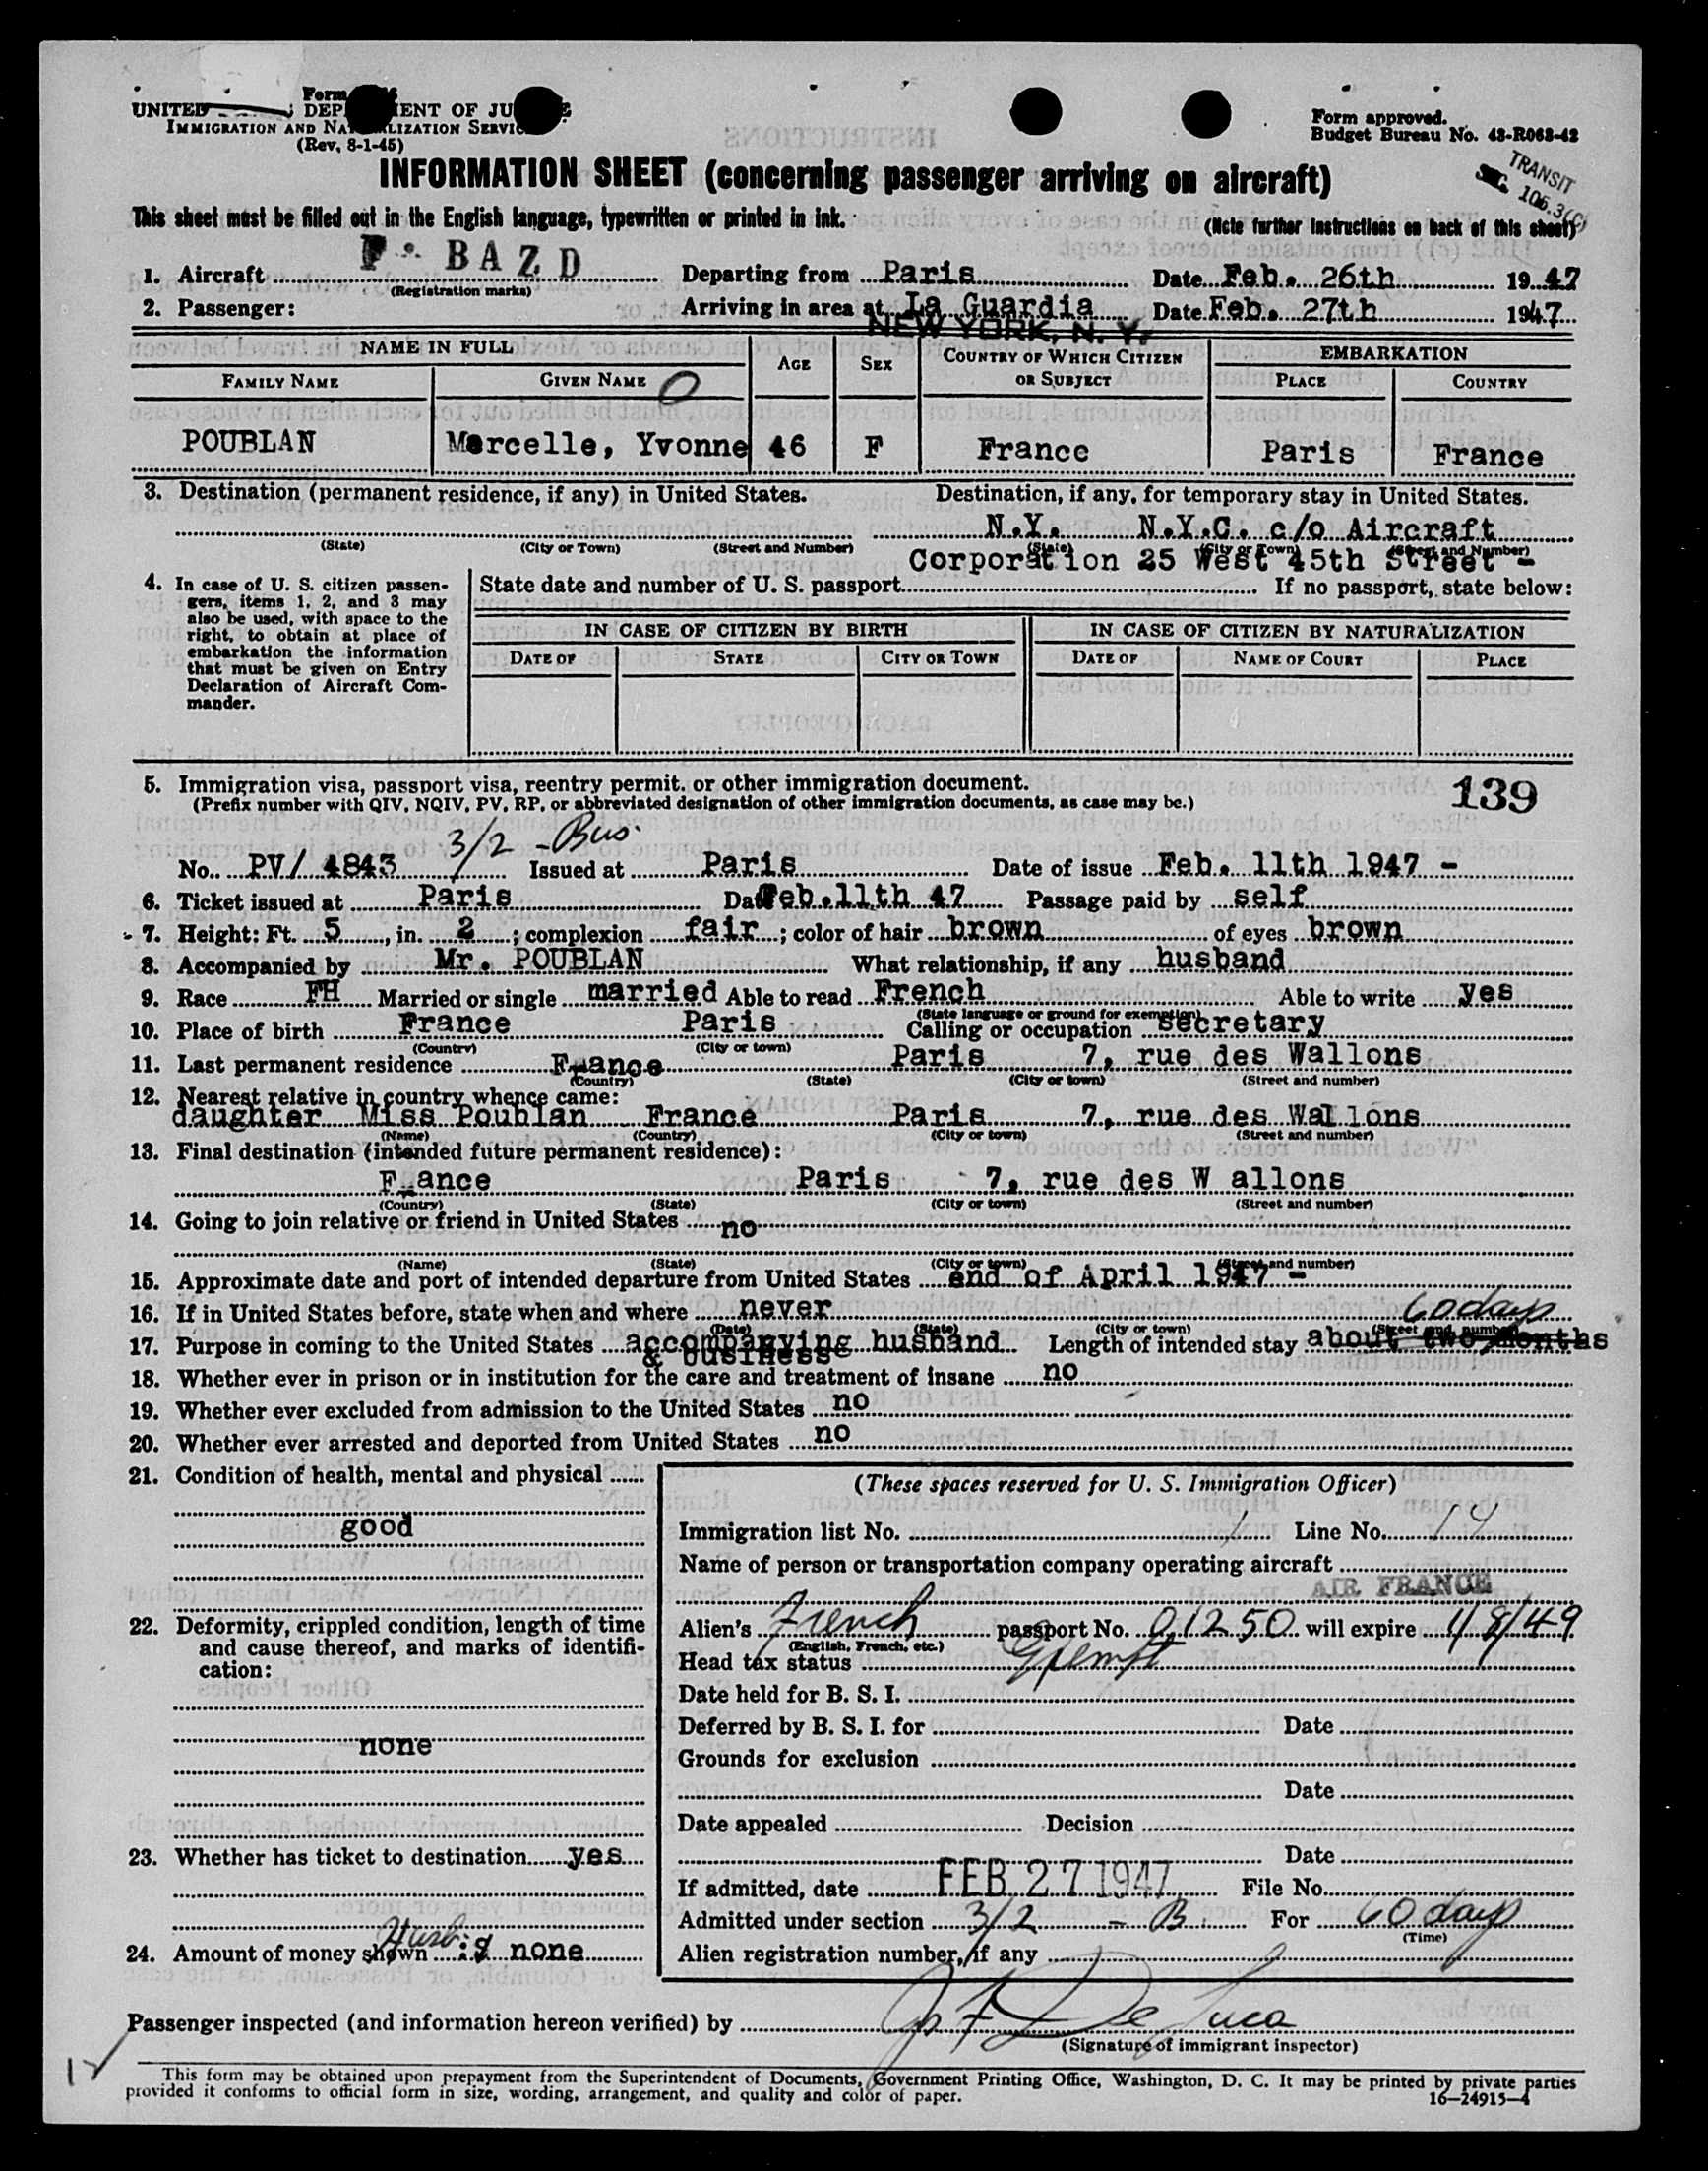 Form
UNITED DEP ENT OF JU
IMMIGRATION AND NA LIZATION SERVIC
(Rev. 8-1-45)
Form approved.
Budget Bureau No. 43-R063-42
INFORMATION SHEET (concerning passenger arriving on aircraft)
TRANSIT
106.3(C)
This sheet must be filled out in the English language, typewritten or printed in ink.
(Note further instructions on back of this sheet)
1. Aircraft F. BAZD Departing from Paris Date Feb. 26th 1947
(Registration marks)
2. Passenger: Arriving in area at La Guardia Date Feb. 27th 1947
NEW YORK, N. Y.
NAME IN FULL AGE SEX COUNTRY OF WHICH CITIZEN OR SUBJECT EMBARKATION
FAMILY NAME GIVEN NAME PLACE COUNTRY
POUBLAN Marcelle, Yvonne 46 F France Paris France
3. Destination (permanent residence, if any) in United States. Destination, if any, for temporary stay in United States.
N.Y. N.Y.C. c/o Aircraft
(State) (City or Town) (Street and Number) (State) (City or Town) (Street and Number)
Corporation 25 West 45th Street -
4. In case of U. S. citizen passen-
gers, items 1, 2, and 3 may
also be used, with space to the
right, to obtain at place of
embarkation the information
that must be given on Entry
Declaration of Aircraft Com-
mander.
State date and number of U. S. passport If no passport, state below:
IN CASE OF CITIZEN BY BIRTH IN CASE OF CITIZEN BY NATURALIZATION
DATE OF STATE CITY OR TOWN DATE OF NAME OF COURT PLACE
5. Immigration visa, passport visa, reentry permit, or other immigration document.
(Prefix number with QIV, NQIV, PV, RP, or abbreviated designation of other immigration documents, as case may be.)
139
3/2 - Bus.
No. PV/ 4843 Issued at Paris Date of issue Feb. 11th 1947 -
6. Ticket issued at Paris Date Feb.11th 47 Passage paid by self
7. Height: Ft. 5, in. 2; complexion fair; color of hair brown of eyes brown
8. Accompanied by Mr. POUBLAN What relationship, if any husband
9. Race FH Married or single married Able to read French Able to write yes
(State language or ground for exemption)
10. Place of birth France Paris Calling or occupation secretary
(Country) (City or town)
11. Last permanent residence France Paris 7, rue des Wallons
(Country) (State) (City or town) (Street and number)
12. Nearest relative in country whence came:
daughter Miss Poublan France Paris 7, rue des Wallons
(Name) (Country) (City or town) (Street and number)
13. Final destination (intended future permanent residence):
France Paris 7, rue des W allons
(Country) (State) (City or town) (Street and number)
14. Going to join relative or friend in United States no
(Name) (State) (City or town) (Street and number)
15. Approximate date and port of intended departure from United States end of April 1947 -
16. If in United States before, state when and where never
(Date) (State) (City or town) (Street and number)
60 days
17. Purpose in coming to the United States accompanying husband Length of intended stay about two months
& business
18. Whether ever in prison or in institution for the care and treatment of insane no
19. Whether ever excluded from admission to the United States no
20. Whether ever arrested and deported from United States no
21. Condition of health, mental and physical
good
22. Deformity, crippled condition, length of time
and cause thereof, and marks of identifi-
cation:
none
23. Whether has ticket to destination yes
24. Amount of money shown none
(These spaces reserved for U. S. Immigration Officer)
Immigration list No. 1 Line No. 14
Name of person or transportation company operating aircraft
AIR FRANCE
Alien's French passport No. 01250 will expire 1/8/49
(English, French, etc.)
Head tax status Exempt
Date held for B. S. I.
Deferred by B. S. I. for Date
Grounds for exclusion
Date
Date appealed Decision
Date
If admitted, date FEB 27 1947 File No.
Admitted under section 3/2 - B For 60 days
(Time)
Alien registration number, if any
Passenger inspected (and information hereon verified) by De Luca
(Signature of immigrant inspector)
This form may be obtained upon prepayment from the Superintendent of Documents, Government Printing Office, Washington, D. C. It may be printed by private parties
provided it conforms to official form in size, wording, arrangement, and quality and color of paper.
16—24915-4